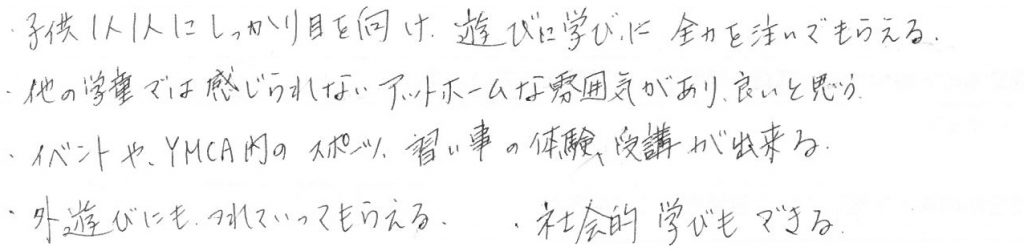 ・子供1人1人にしっかり目を向け、遊びに学びに全力を注いでもらえる。
・他の学童では感じられないアットホームな雰囲気があり、良いと思う。
・イベントや、YMCA内のスポーツ、習い事の体験、受講が出来る。
・外遊びにも、つれていってもらえる。 ・社会的学びもできる。